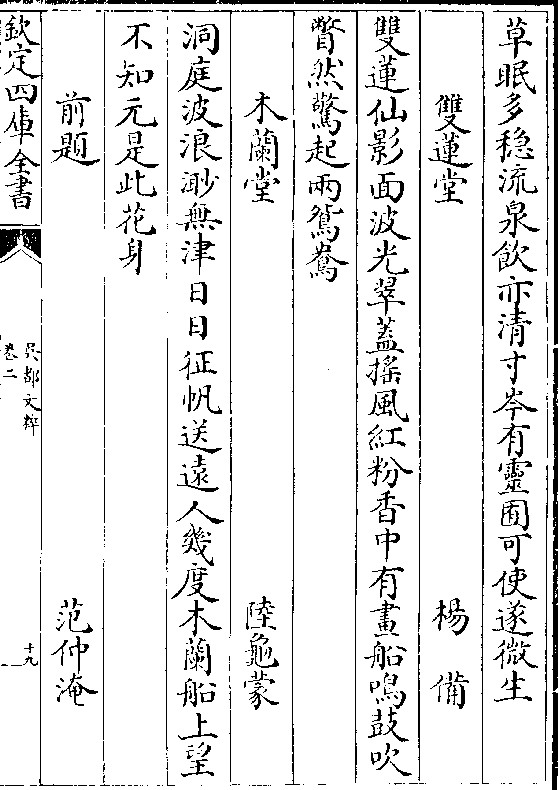 草眠多穏流泉飲亦清寸岑有靈囿可使遂微生
雙蓮堂　楊備
雙蓮仙影面波光翠葢搖風紅粉香中有畫船鳴鼓吹
瞥然驚起兩鴛鴦
木蘭堂　陸龜蒙
洞庭波浪渺無津日日征帆送遠人幾度木蘭船上望
不知元是此花身
前題　范仲淹
欽定四庫全書
吳都文粹
卷二
十九